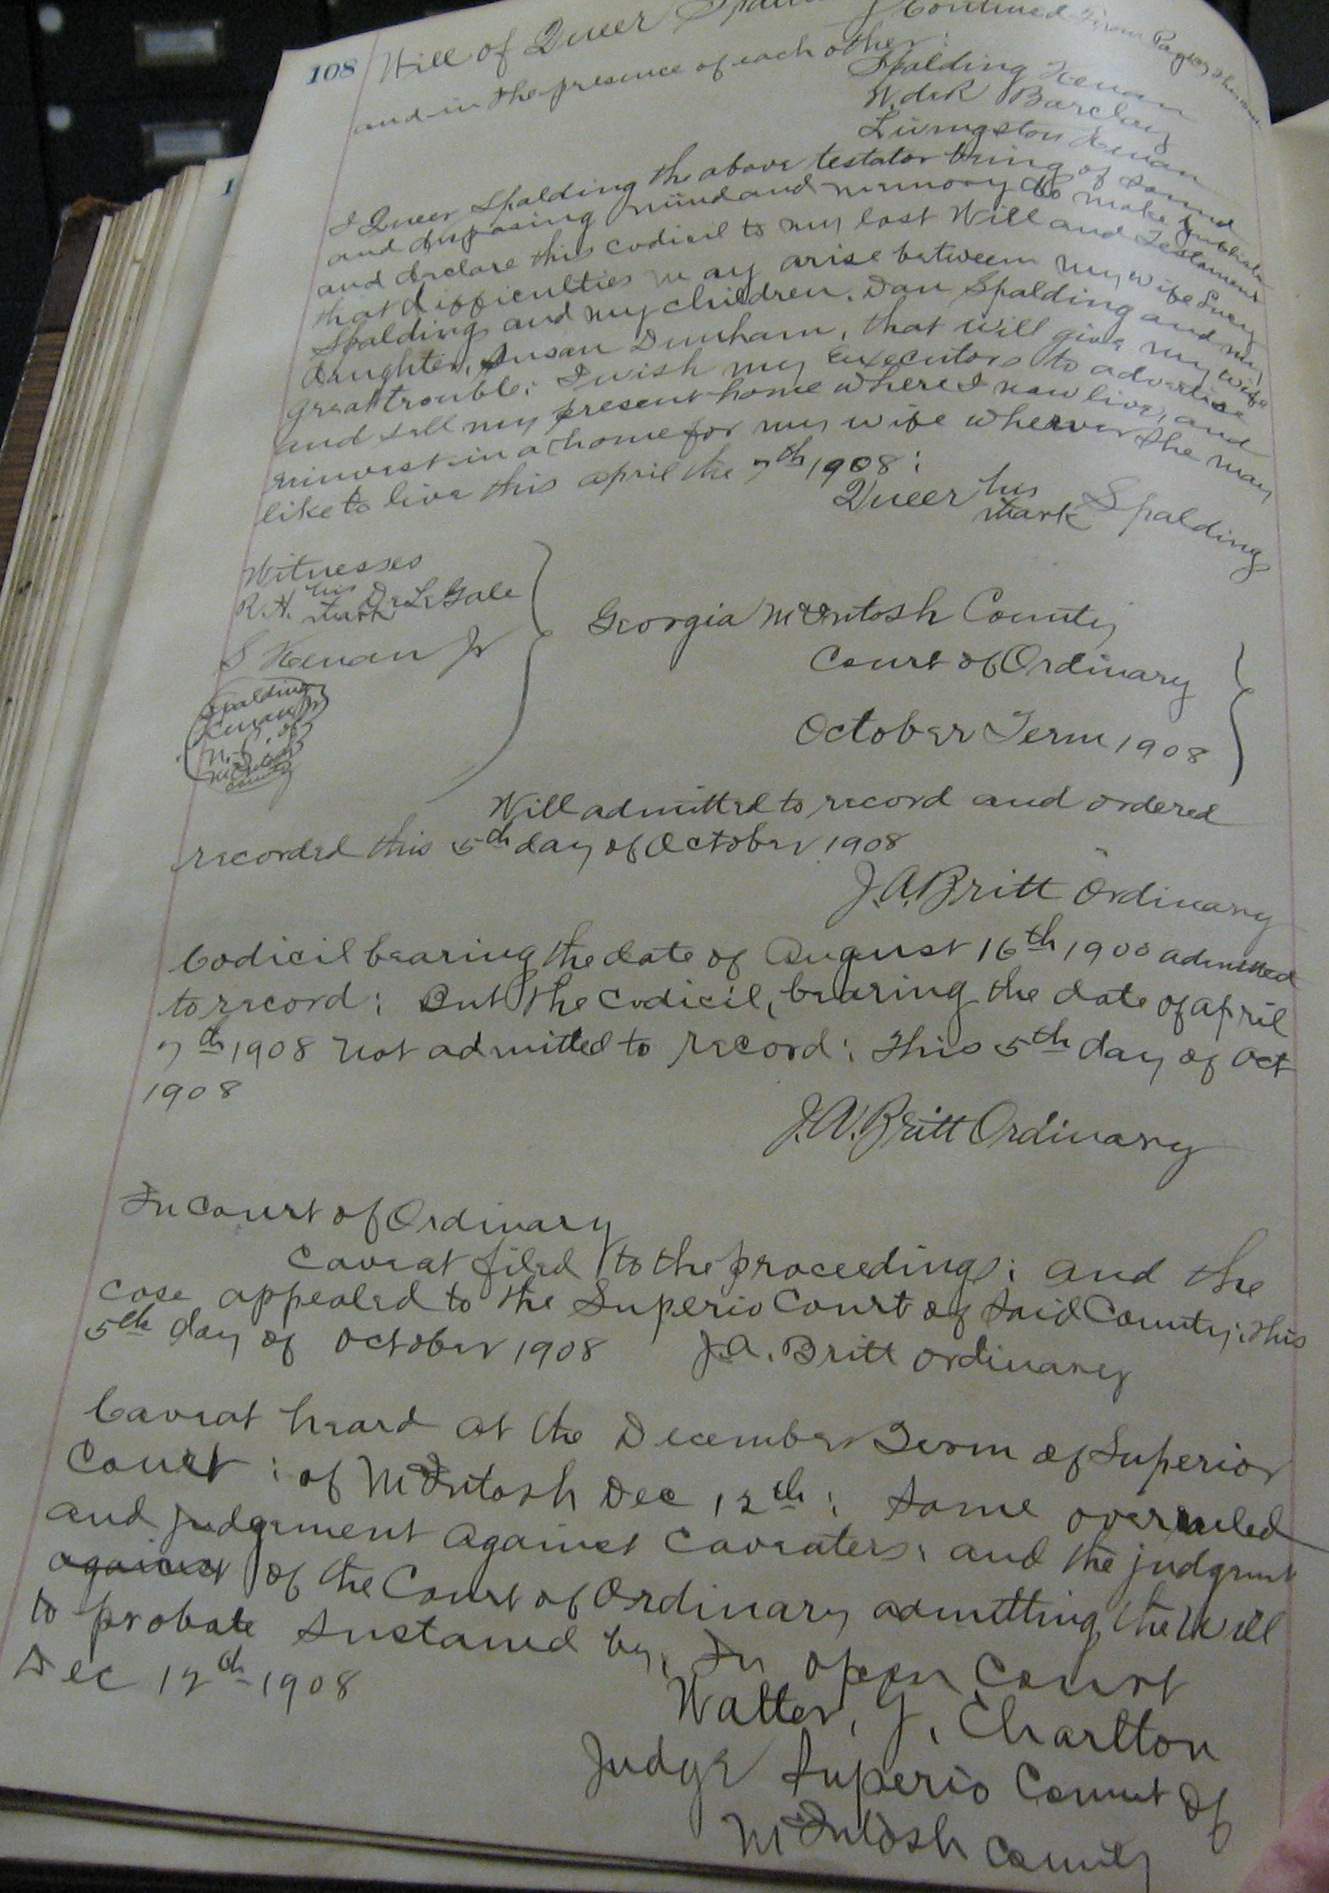 108 Will of Queer Spalding Continued From Page
and in the presence of each other:
Spalding Kenan
W. deR Barclay
Livingston Kenan
I Queer Spalding the above testator being of sound
and disposing mind and memory do make publish
and declare this codicil to my last Will and Testament
that difficulties may arise between my wife Lucy
Spalding and my children. Dan Spalding and my
daughter, Susan Dunham, that will give my wife
great trouble: I wish my executors to advertise
and sell my present home where I now live, and
reinvest in a home for my wife wherever she may
like to live this april the 7th 1908:
Queer his mark Spalding
Witnesses
R. H. his mark DeLeGale
S Kenan Jr
Spalding
Kenan Jr
N. P. of
McIntosh
County
Georgia McIntosh County
Court of Ordinary
October Term 1908
Will admitted to record and ordered
recorded this 5th day of October 1908
J. A. Britt Ordinary
Codicil bearing the date of August 16th 1900 admitted
to record: But the codicil, bearing the date of april
7th 1908 not admitted to record: this 5th day of Oct
1908
J. A. Britt Ordinary
In Court of Ordinary
Caveat filed to the proceedings: and the
case appealed to the Superio Court of said County: this
5th day of October 1908 J. A. Britt Ordinary
Caveat heard at the December Term of Superior
Court: of McIntosh Dec 12th: Same overruled
and judgement against Caveaters: and the judgment
against of the Court of Ordinary admitting the Will
to probate sustained by, In open Court
Dec 12th 1908
Walter, G. Charlton
Judge Superio Court of
McIntosh County